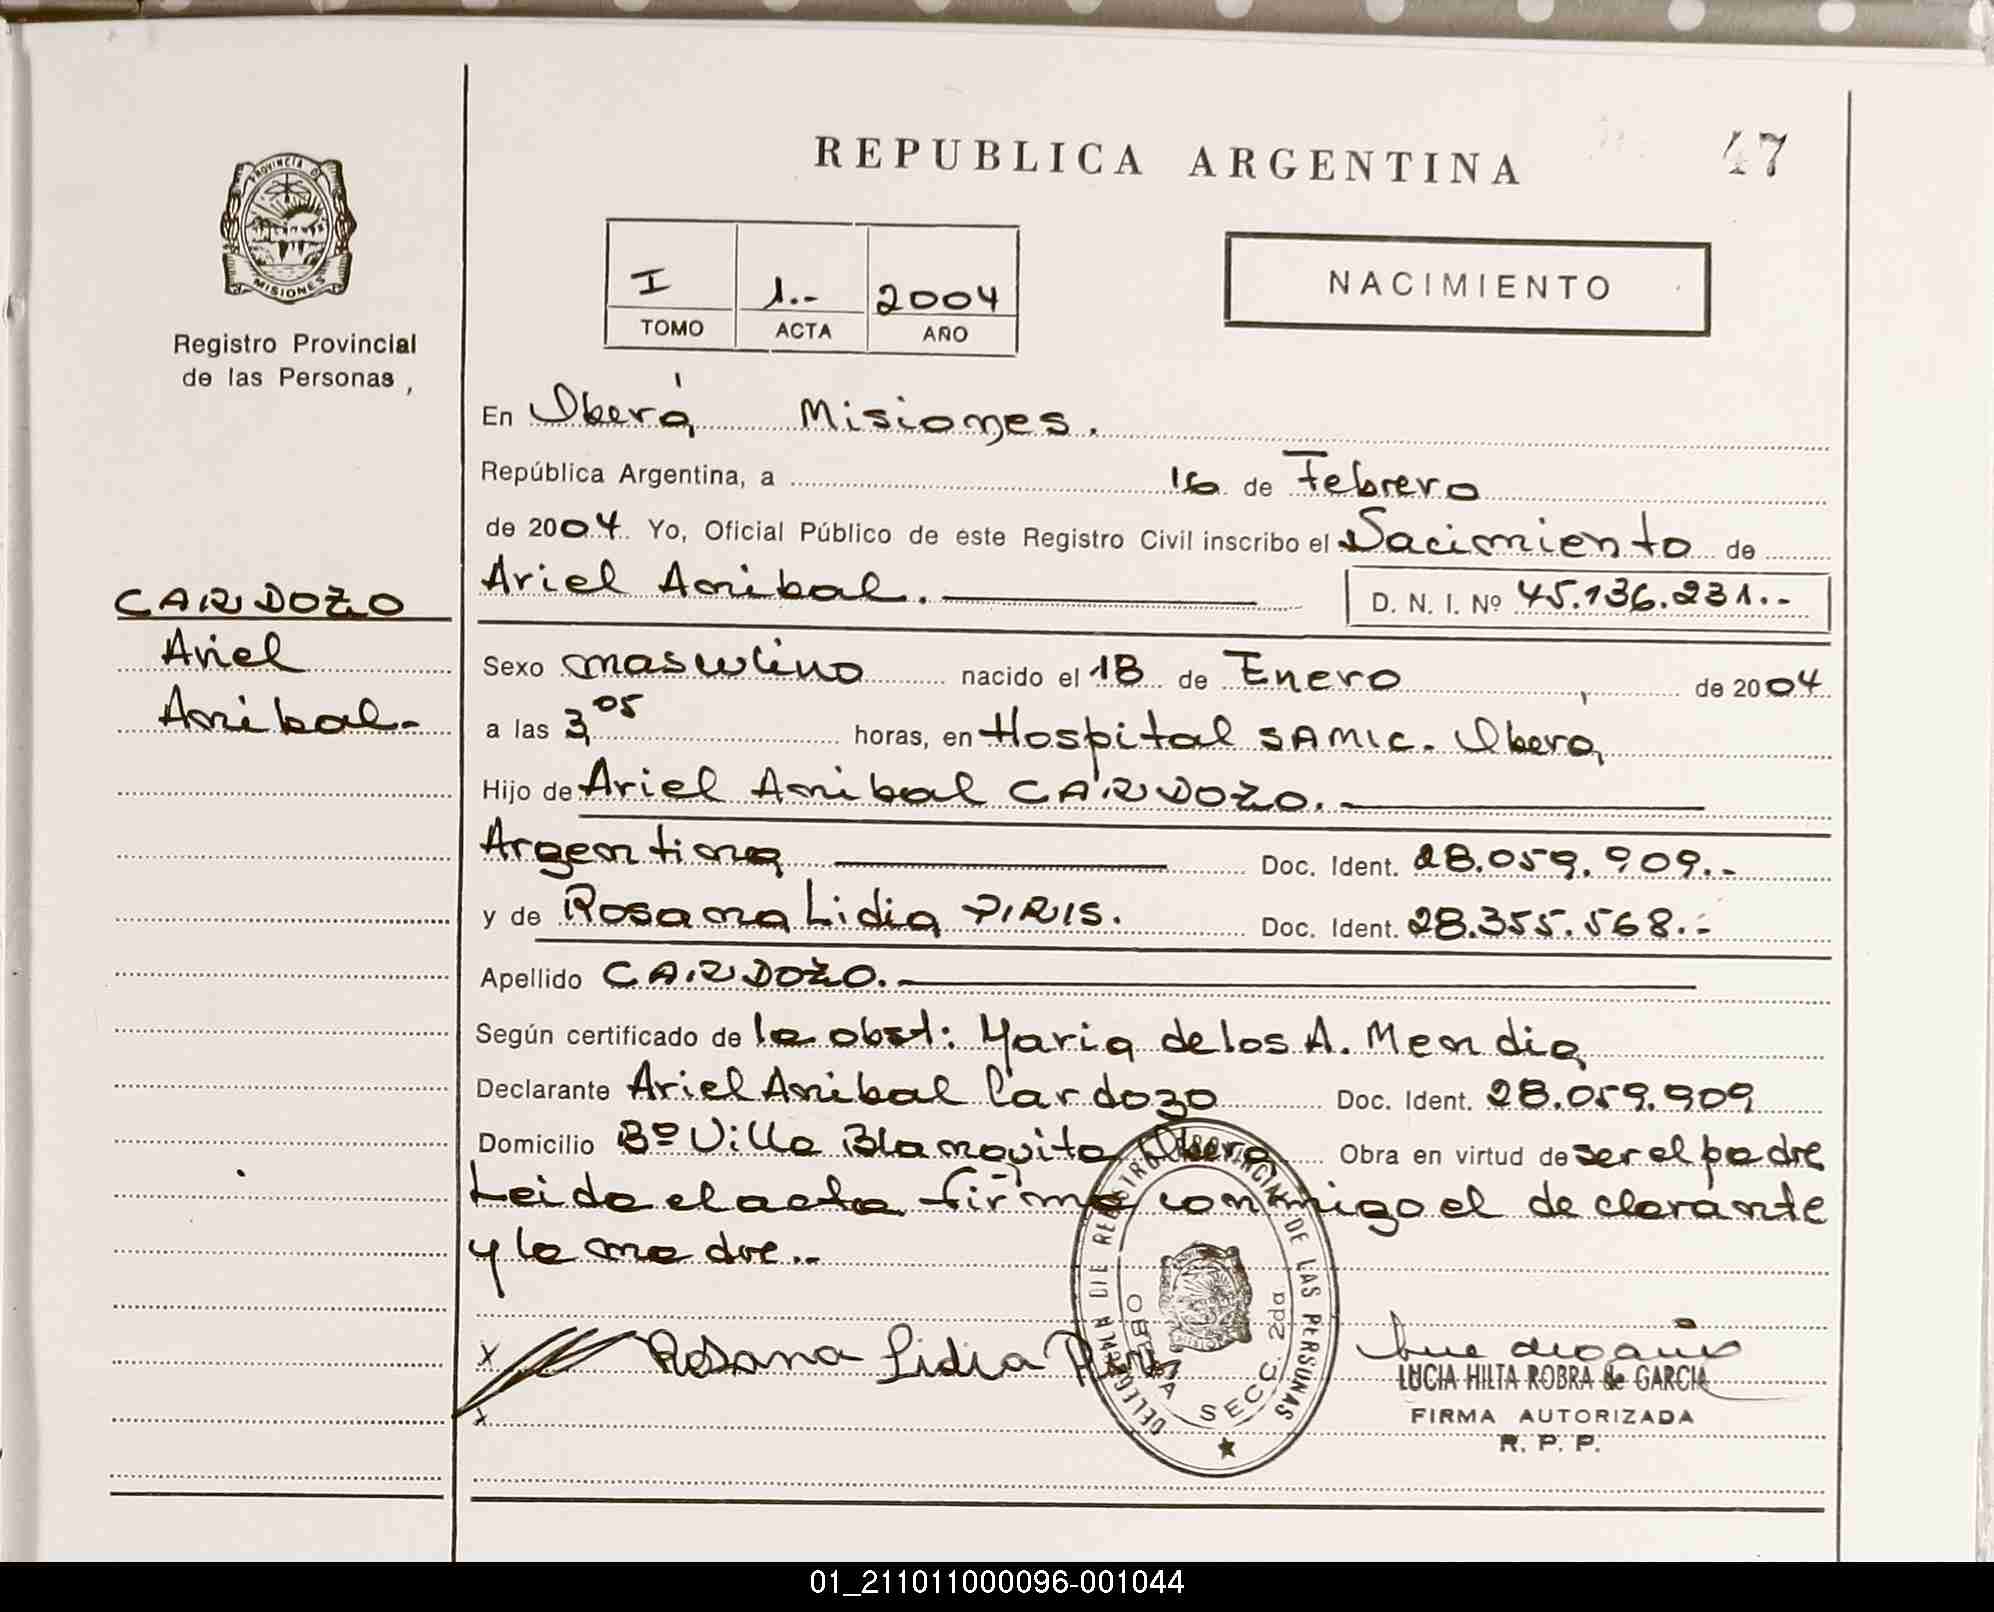 REPUBLICA ARGENTINA 47
PROVINCIA DE
MISIONES
Registro Provincial
de las Personas,
I 1.- 2004
TOMO ACTA AÑO
NACIMIENTO
En Oberá Misiones.
República Argentina, a 16 de Febrero
de 2004. Yo, Oficial Público de este Registro Civil inscribo el Nacimiento de
Ariel Anibal. D. N. I. Nº 45.136.231.-
CARDOZO
Ariel
Anibal.-
Sexo masculino nacido el 18 de Enero, de 2004
a las 3,05 horas, en Hospital SAMIC. Oberá
Hijo de Ariel Anibal CARDOZO.
Argentina Doc. Ident. 28.059.909.-
y de Rosana Lidia PIRIS. Doc. Ident. 28.355.568.-
Apellido CARDOZO.
Según certificado de la obst: Maria de los A. Mendia
Declarante Ariel Anibal Cardozo Doc. Ident. 28.059.909
Domicilio Bº Villa Blanquita Oberá Obra en virtud de ser el padre
Leida el acta firma conmigo el declarante
y la madre..-
x Rosana Lidia Piris
x
DELEGACION DE REGISTRO PROVINCIAL DE LAS PERSONAS
OBERA SECC. 2da
LUCIA HILTA ROBRA de GARCIA
FIRMA AUTORIZADA
R. P. P.
01_211011000096-001044